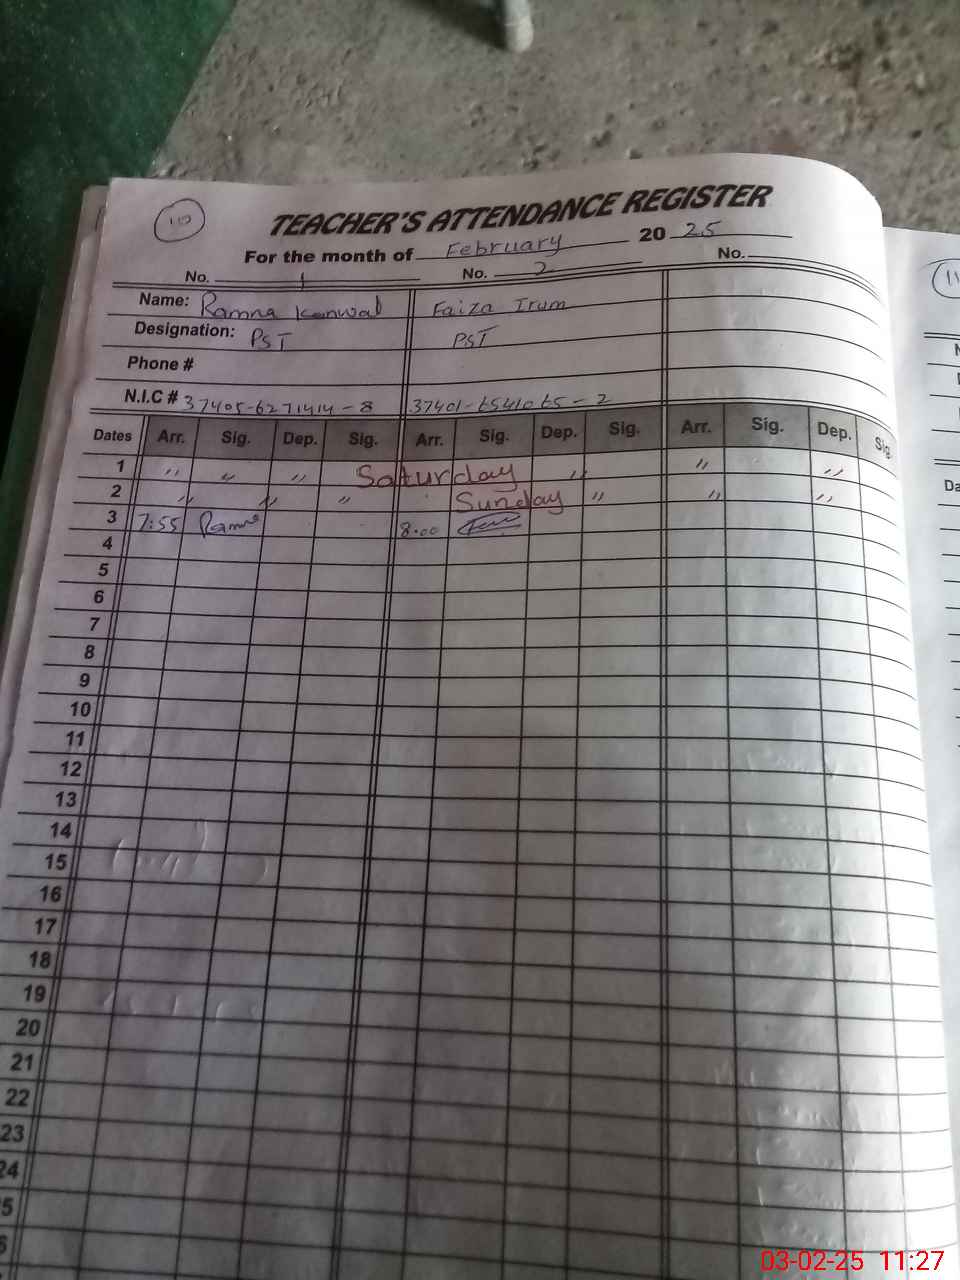 10
TEACHER'S ATTENDANCE REGISTER
For the month of February 20 25
No. 1 No. 2 No.
Name: Ramna Kanwal Faiza Irum
Designation: PST PST
Phone #
N.I.C # 37405-6271414-8 37401-6541065-2
Dates Arr. Sig. Dep. Sig. Arr. Sig. Dep. Sig. Arr. Sig. Dep. Sig.
1 " " " Saturday " " "
2 " " " Sunday " " "
3 7:55 Ramna 8.00
4
5
6
7
8
9
10
11
12
13
14
15
16
17
18
19
20
21
22
23
24
5
6
11
N
Da
03-02-25 11:27